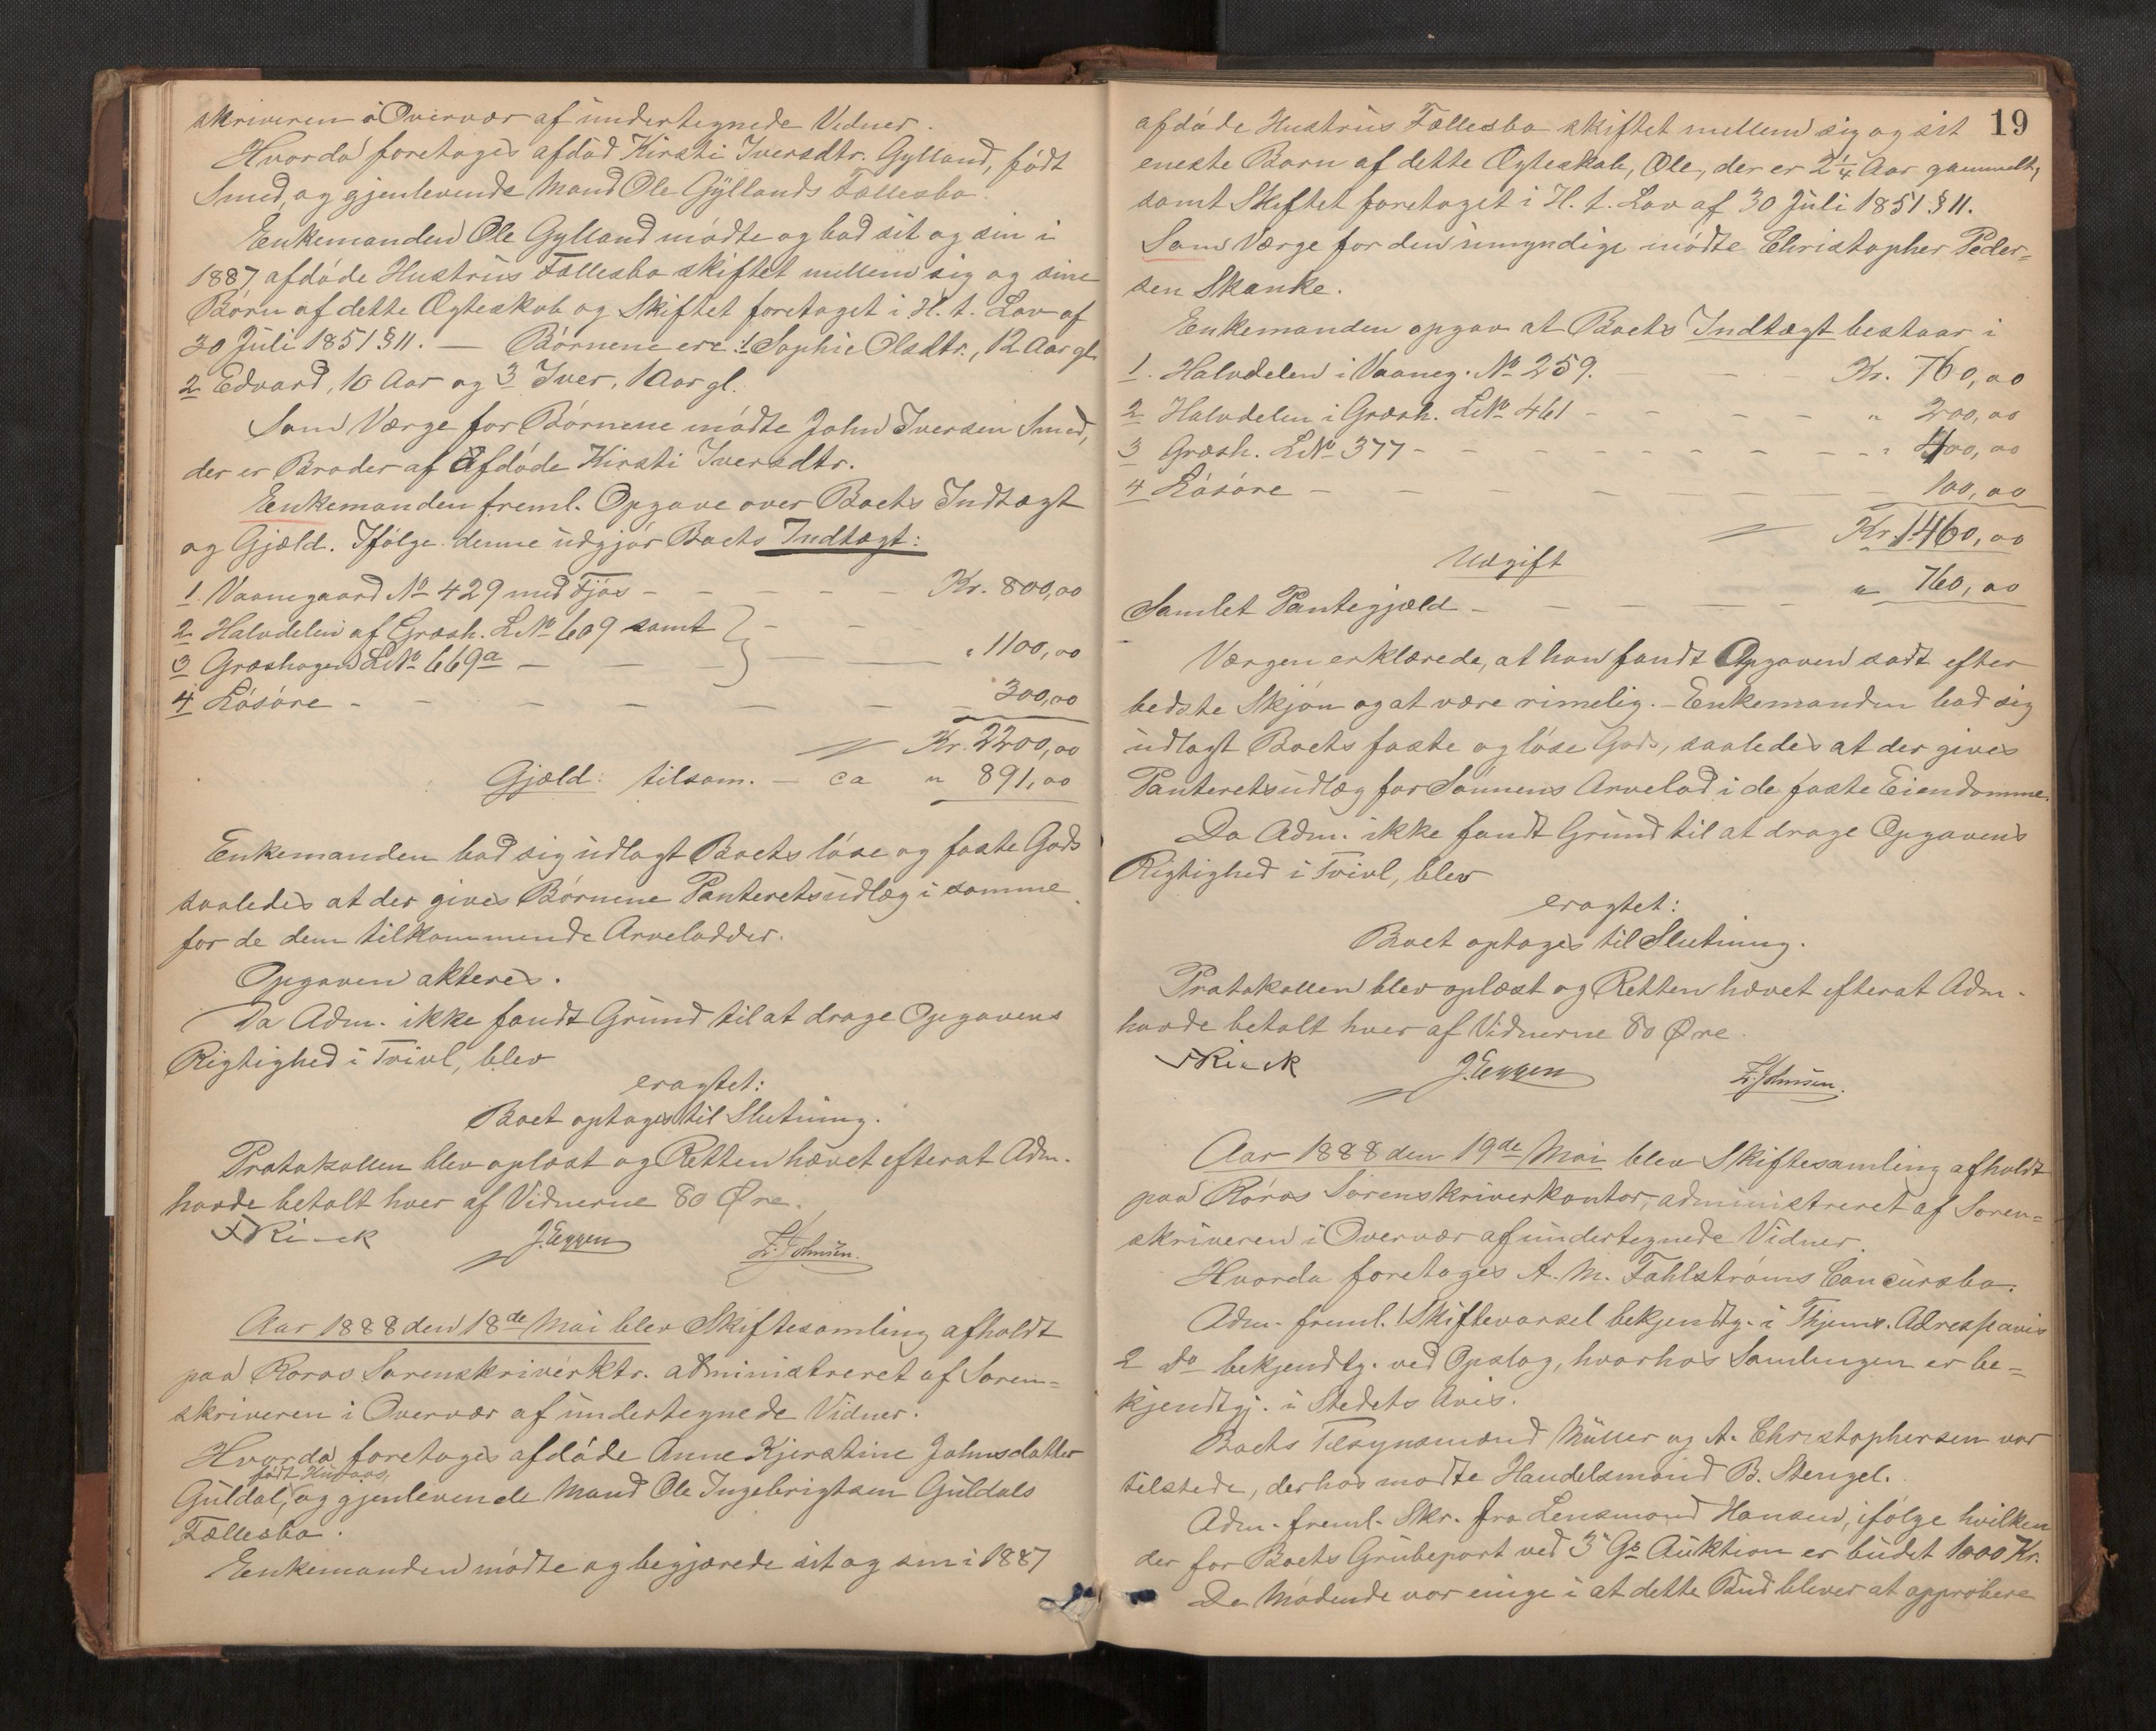 skriveren i Overvær af undertegnede Vidner.
Hvorda foretoges afdød Kirsti Iversdtr. Gylland, født
Smed, og gjenlevende Mand Ole Gyllands Fællesbo.
Enkemanden Ole Gylland mødte og bad sit og sin i
1887 afdøde Hustrus Fællesbo skiftet mellem sig og sine
Børn af dette Ægteskab og Skiftet foretaget i H. t. Lov af
30 Juli 1851 § 11. — Børnene ere: 1 Sophie Olsdtr., 12 Aar gl.
2 Edvard, 10 Aar og 3 Iver, 1 Aar gl.
Som Værge for Børnene mødte John Iversen Smed,
der er Broder af Afdøde Kirsti Iversdtr.
Enkemanden freml. Opgave over Boets Indtægt
og Gjæld. Ifølge denne udgjør Boets Indtægt:
1. Vaanegaard No 429 med Fjøs - - - - - Kr. 800,00
2 Halvdelen af Græsh. LNo 609 samt } - -
3 Græshagen LNo 669a - - - } - - " 1100,00
4 Løsøre - - - - - - - 300,00
Kr. 2200,00
Gjæld: tilsam. - ca " 891,00
Enkemanden bad sig udlagt Boets løse og faste Gods
saaledes at der gives Børnene Panteretsudlæg i samme
for de dem tilkommende Arvelodder.
Opgaven akteres.
Da Adm. ikke fandt Grund til at drage Opgavens
Rigtighed i Tvivl, blev
eragtet:
Boet optages til Slutning.
Protokollen blev oplæst og Retten hævet efterat Adm.
havde betalt hver af Vidnerne 80 Øre.
J. Eggen
Z. Johnsen.
Aar 1888 den 18de Mai blev Skiftesamling afholdt
paa Røros Sorenskriverktr. administreret af Soren-
skriveren i Overvær af undertegnede Vidner.
Hvorda foretoges afdøde Anne Kjerstine Johnsdatter
født
Guldal, og gjenlevende Mand Ole Ingebrigtsen Guldals
Fællesbo.
Enkemanden mødte og begjærede sit og sin i 1887
19
afdøde Hustrus Fællesbo skiftet mellem sig og sit
eneste Barn af dette Ægteskab, Ole, der er 2¼ Aar gammelt,
samt Skiftet foretaget i H. t. Lov af 30 Juli 1851 § 11.
Som Værge for den umyndige mødte Christopher Peder-
sen Skanke.
Enkemanden opgav at Boets Indtægt bestaar i
1. Halvdelen i Vaaneg. No 259. - - - Kr. 760,00
2 Halvdelen i Græsh. LNo 461 - - - - " 200,00
3 Græsh. LNo 377 - - - - - - - " 400,00
4 Løsøre - - - - - - 100,00
Kr. 1460,00
Udgift
Samlet Pantegjæld - - - - " 760,00
Værgen erklærede, at han fandt Opgaven sadt efter
bedste Skjøn og at være rimelig. - Enkemanden bad sig
udlagt Boets faste og løse Gods, saaledes at der gives
Panteretsudlæg for Sønnens Arvelod i de faste Eiendomme.
Da Adm. ikke fandt Grund til at drage Opgavens
Rigtighed i Tvivl, blev
eragtet:
Boet optages til Slutning.
Protokollen blev oplæst og Retten hævet efterat Adm.
havde betalt hver af Vidnerne 80 Øre.
J. Eggen
Z. Johnsen.
Aar 1888 den 19de Mai blev Skiftesamling afholdt
paa Røros Sorenskriverkontor, administreret af Soren-
skriveren i Overvær af undertegnede Vidner.
Hvorda foretoges A. M. Fahlstrøms Concursbo.
Adm. freml. 1 Skiftevarsel bekjendtg. i Thjems. Adresseavis
2 Do bekjendtg. ved Opslag, hvorhos Samlingen er be-
kjendtgj. i Stedets Avis.
Boets Tilsynsmænd Müller og A. Christophersen var
tilstede, derhos mødte Handelsmand B. Stengel.
Adm. freml. Skr. fra Lensmand Hansen, ifølge hvilken
der for Boets Grubepart ved 3 Gs Auktion er budet 1000 Kr.
De Mødende var enige i at dette Bud bliver at approbere